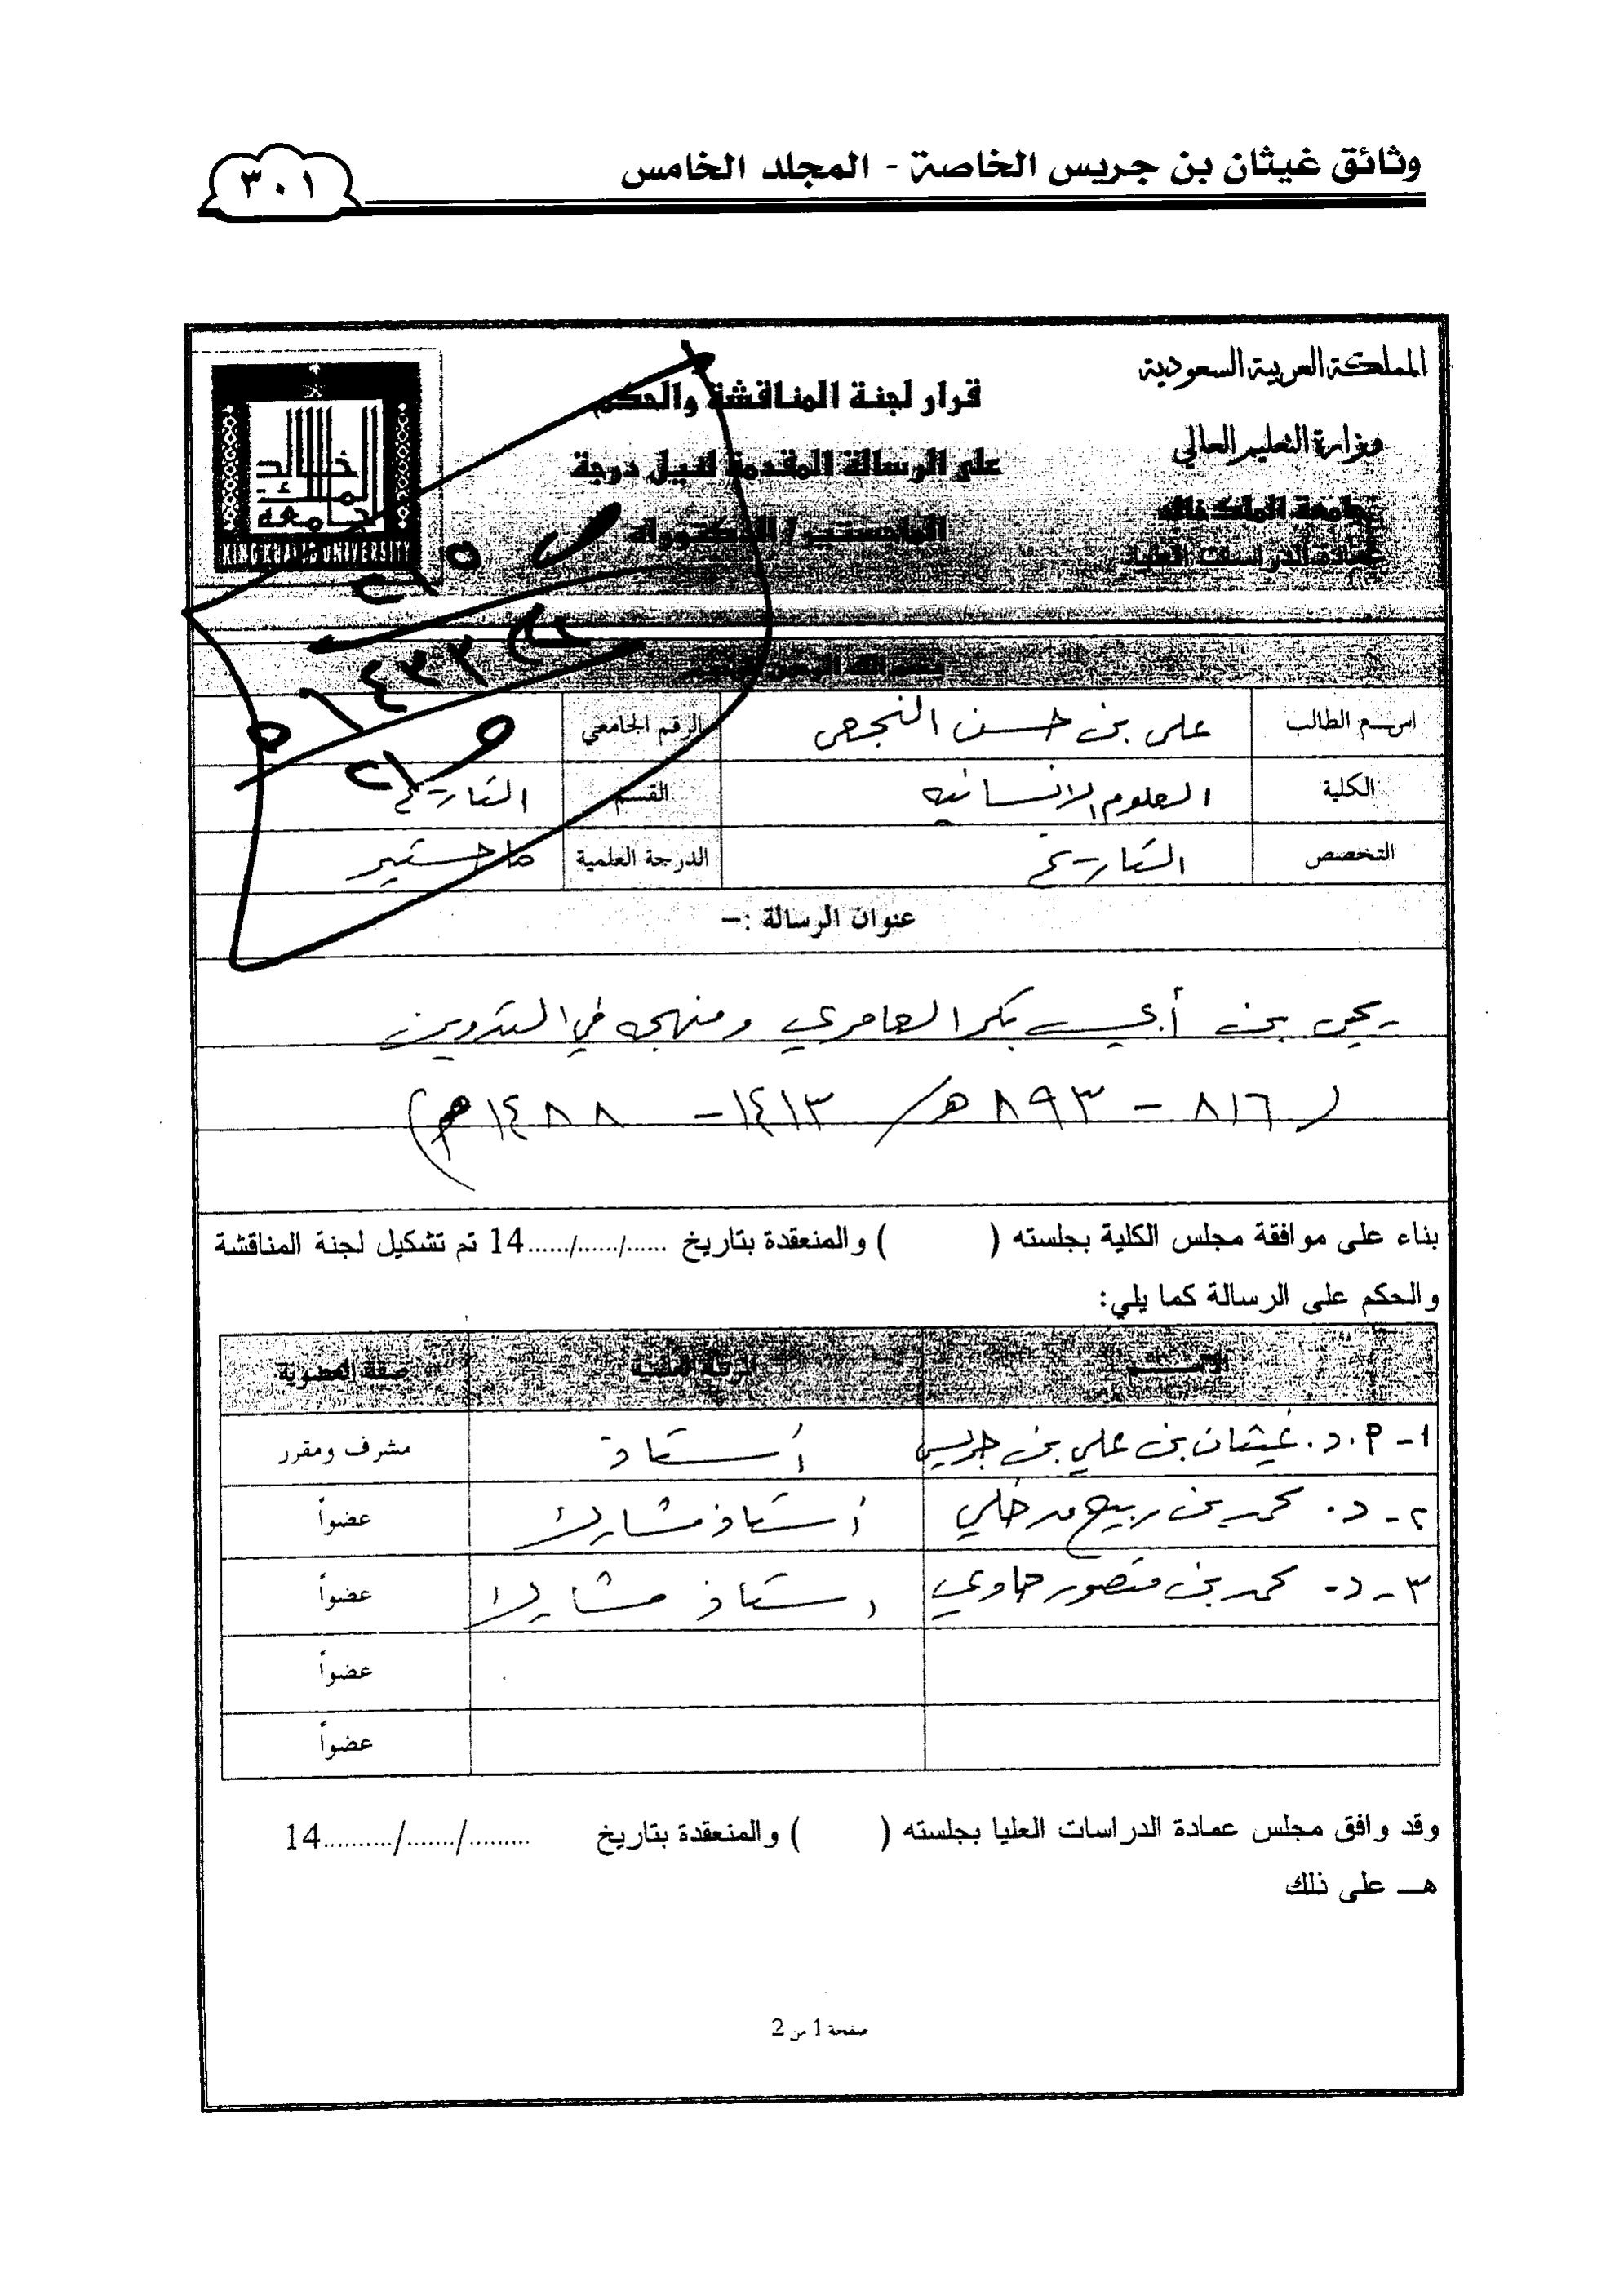 وثائق غيثان بن جريس الخاصة - المجلد الخامس
٣٠١
المملكة العربية السعودية
وزارة التعليم العالي
جامعة الملك خالد
عمادة الدراسات العليا
قرار لجنة المناقشة والحكم
على الرسالة المقدمة لنيل درجة
الماجستير / الدكتوراه
جامعة الملك خالد
KING KHALID UNIVERSITY
بسم الله الرحمن الرحيم
اسم الطالب علي بن حسن النجعي الرقم الجامعي
الكلية العلوم الإنسانية القسم التاريخ
التخصص التاريخ الدرجة العلمية ماجستير
عنوان الرسالة :-
يحيى بن أبي بكر العامري ومنهجه في التدوين
(٨١٦ - ٨٩٣ هـ / ١٤١٣ - ١٤٨٨م)
بناء على موافقة مجلس الكلية بجلسته ( ) والمنعقدة بتاريخ ....../....../......14 تم تشكيل لجنة المناقشة
والحكم على الرسالة كما يلي:
الاســـم الرتبة العلمية صفة العضوية
١- أ.د. غيثان بن علي بن جريس أستاذ مشرف ومقرر
٢- د. محمد بن ربيع مدخلي أستاذ مشارك عضواً
٣- د- محمد بن منصور حاوي استاذ مشارك عضواً
عضواً
عضواً
وقد وافق مجلس عمادة الدراسات العليا بجلسته ( ) والمنعقدة بتاريخ ........./......./..........14
هـــ على ذلك
صفحة 1 من 2